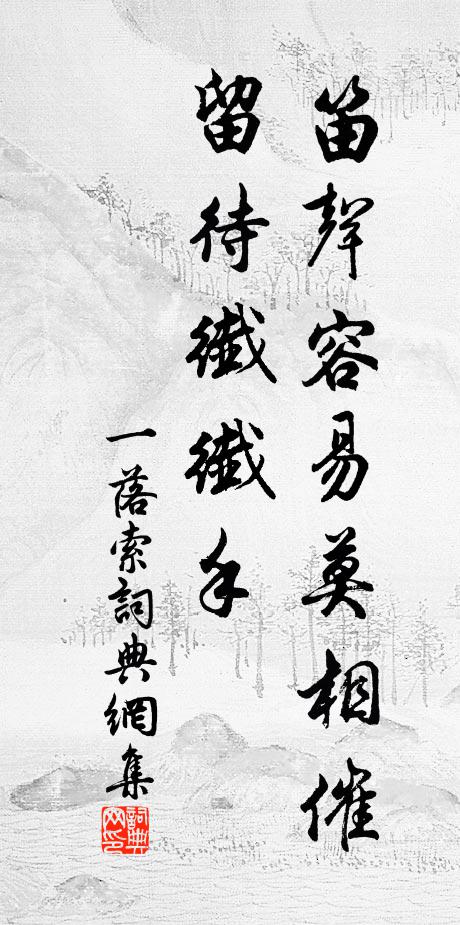 笛聲容易莫相催
留待纖纖手
一落索詞典網集
詞典
网印